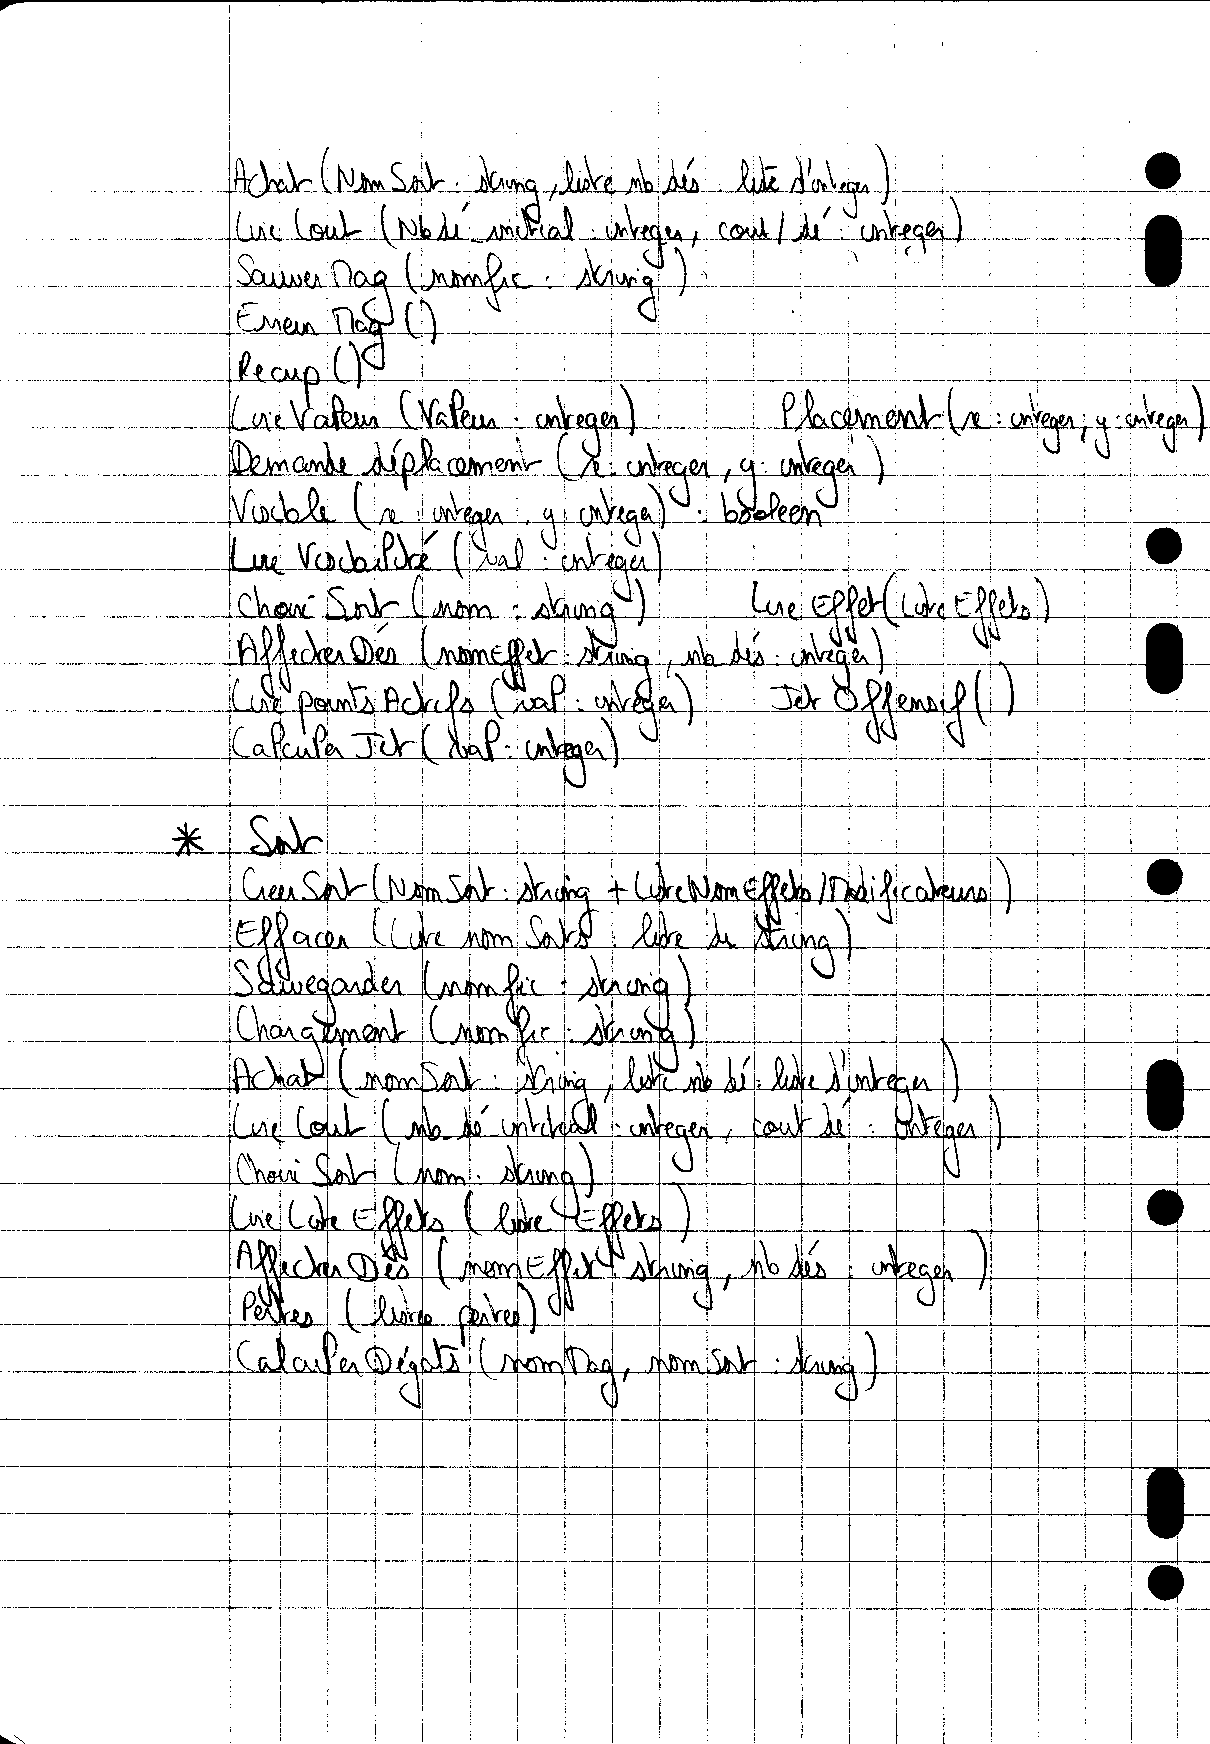 Achat (Nom Sort : string, liste nb dés : liste d'integer)
Lire Cout (Nb dé initial : integer, cout / dé : integer)
Sauver Mag (nomfic : string)
Mag ()
Recup ()
Lire Valeur (Valeur : integer) Placement (x : integer, y : integer)
Demande déplacement (x : integer, y : integer)
Visible (x : integer, y : integer) : booleen
Lire Visibilité (val : integer)
Choix Sort (nom : string) Lire Effet (Liste Effets)
Affecter Dés (nom Effet : string, nb dés : integer)
Lire points Actifs (val : integer) Jet Offensif ()
Calculer Jet (val : integer)
* Sort
Creer Sort (Nom Sort : string + Liste Nom Effets / Modificateurs)
Effacer (Liste nom Sorts : liste de string)
Sauvegarder (nom fic : string)
Chargement (nom fic : string)
Achat (nom Sort : string, liste nb dé : liste d'integer)
Lire Cout (nb dé initial : integer, cout dé : integer)
Choix Sort (nom : string)
Lire Liste Effets (liste Effets)
Affecter Dés (nom Effet : string, nb dés : integer)
Pertes (liste pertes)
Calculer Dégats (nom Mag, nom Sort : string)